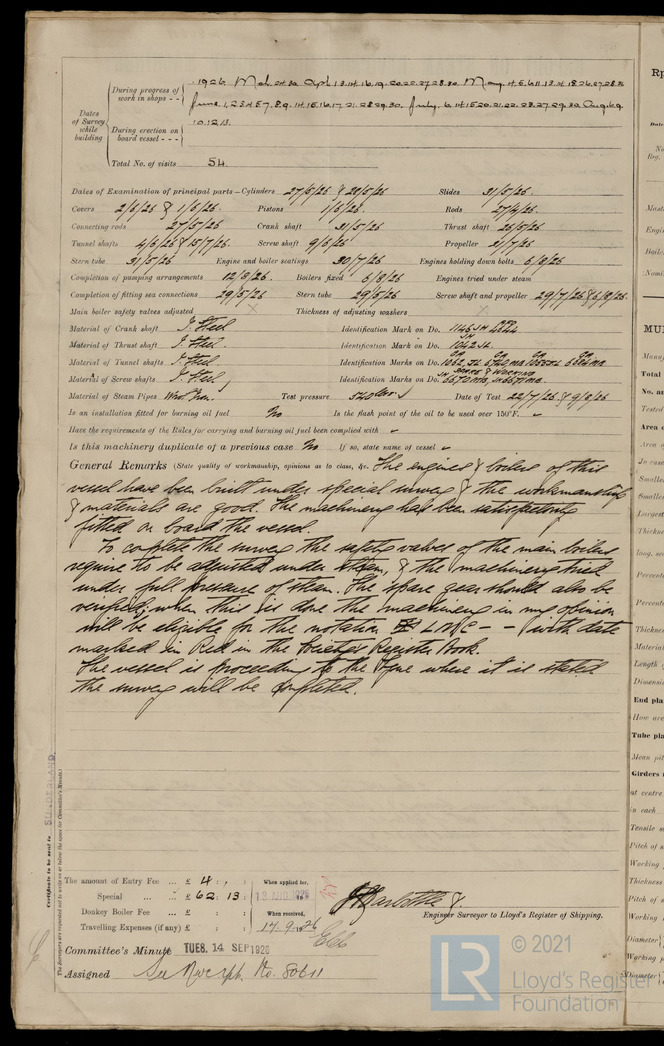 During progress of work in shops - - 1926. Mch. 24.30. Apl. 1.8.14.16.19.20.22.27.28.30. May 4.5.6.11.13.14.18.26.27.28.31
Dates of Survey while building June 1.2.3.4.5.7.8.9.14.15.16.17.21.28.29.30. July. 6.14.15.20.21.22.28.27.29.30. Aug. 6.9.
During erection on board vessel - - - 10.12.13.
Total No. of visits 54.
Dates of Examination of principal parts—Cylinders 27/5/26 & 28/5/26 Slides 31/5/26.
Covers 2/6/26 & 1/6/26. Pistons 1/6/26. Rods 27/4/26.
Connecting rods 27/5/26 Crank shaft 31/5/26 Thrust shaft 26/5/26
Tunnel shafts 4/6/26 & 15/7/26. Screw shaft 9/6/26 Propeller 21/7/26
Stern tube 31/5/26 Engine and boiler seatings 30/7/26 Engines holding down bolts 6/8/26
Completion of pumping arrangements 12/8/26. Boilers fixed 6/8/26 Engines tried under steam
Completion of fitting sea connections 29/5/26 Stern tube 29/5/26 Screw shaft and propeller 29/7/26 & 6/8/26.
Main boiler safety valves adjusted Thickness of adjusting washers
Material of Crank shaft I. Steel Identification Mark on Do.
Material of Thrust shaft I. Steel. Identification Mark on Do. 1042 JH.
Material of Tunnel shafts I. Steel. Identification Marks on Do.
Material of Screw shafts I. Steel. Identification Marks on Do. SPARE & WORKING
Material of Steam Pipes Wrot Iron. Test pressure 540 lbs. Date of Test 22/7/26 & 9/8/26
Is an installation fitted for burning oil fuel No Is the flash point of the oil to be used over 150°F.
Have the requirements of the Rules for carrying and burning oil fuel been complied with
Is this machinery duplicate of a previous case No If so, state name of vessel
General Remarks (State quality of workmanship, opinions as to class, &c. The engines & boilers of this
vessel have been built under special survey & the workmanship
& materials are good. The machinery has been satisfactorily
fitted on board the vessel.
To complete the survey the safety valves of the main boilers
require to be adjusted under steam, & the machinery tried
under full pressure of steam. The spare gear should also be
verified; when this is done the machinery in my opinion
will be eligible for the notation LMC - - (with date
marked in Red in the Society's Register Book.
The vessel is proceeding to the Tyne where it is stated
the survey will be completed.
Certificate to be sent to SUNDERLAND.
(The Surveyors are requested not to write on or below the space for Committee's Minute.)
The amount of Entry Fee ... £ 4 : : When applied for,
Special ... ... £ 62 : 13 : 13 AUG 1926
Donkey Boiler Fee ... £ : : When received,
Travelling Expenses (if any) £ : : 14.9.26
Engineer Surveyor to Lloyd's Register of Shipping.
Committee's Minute TUES. 14 SEP 1926
Assigned See Nwc rpt. No. 80611
© 2021
LR
Lloyd's Register
Foundation